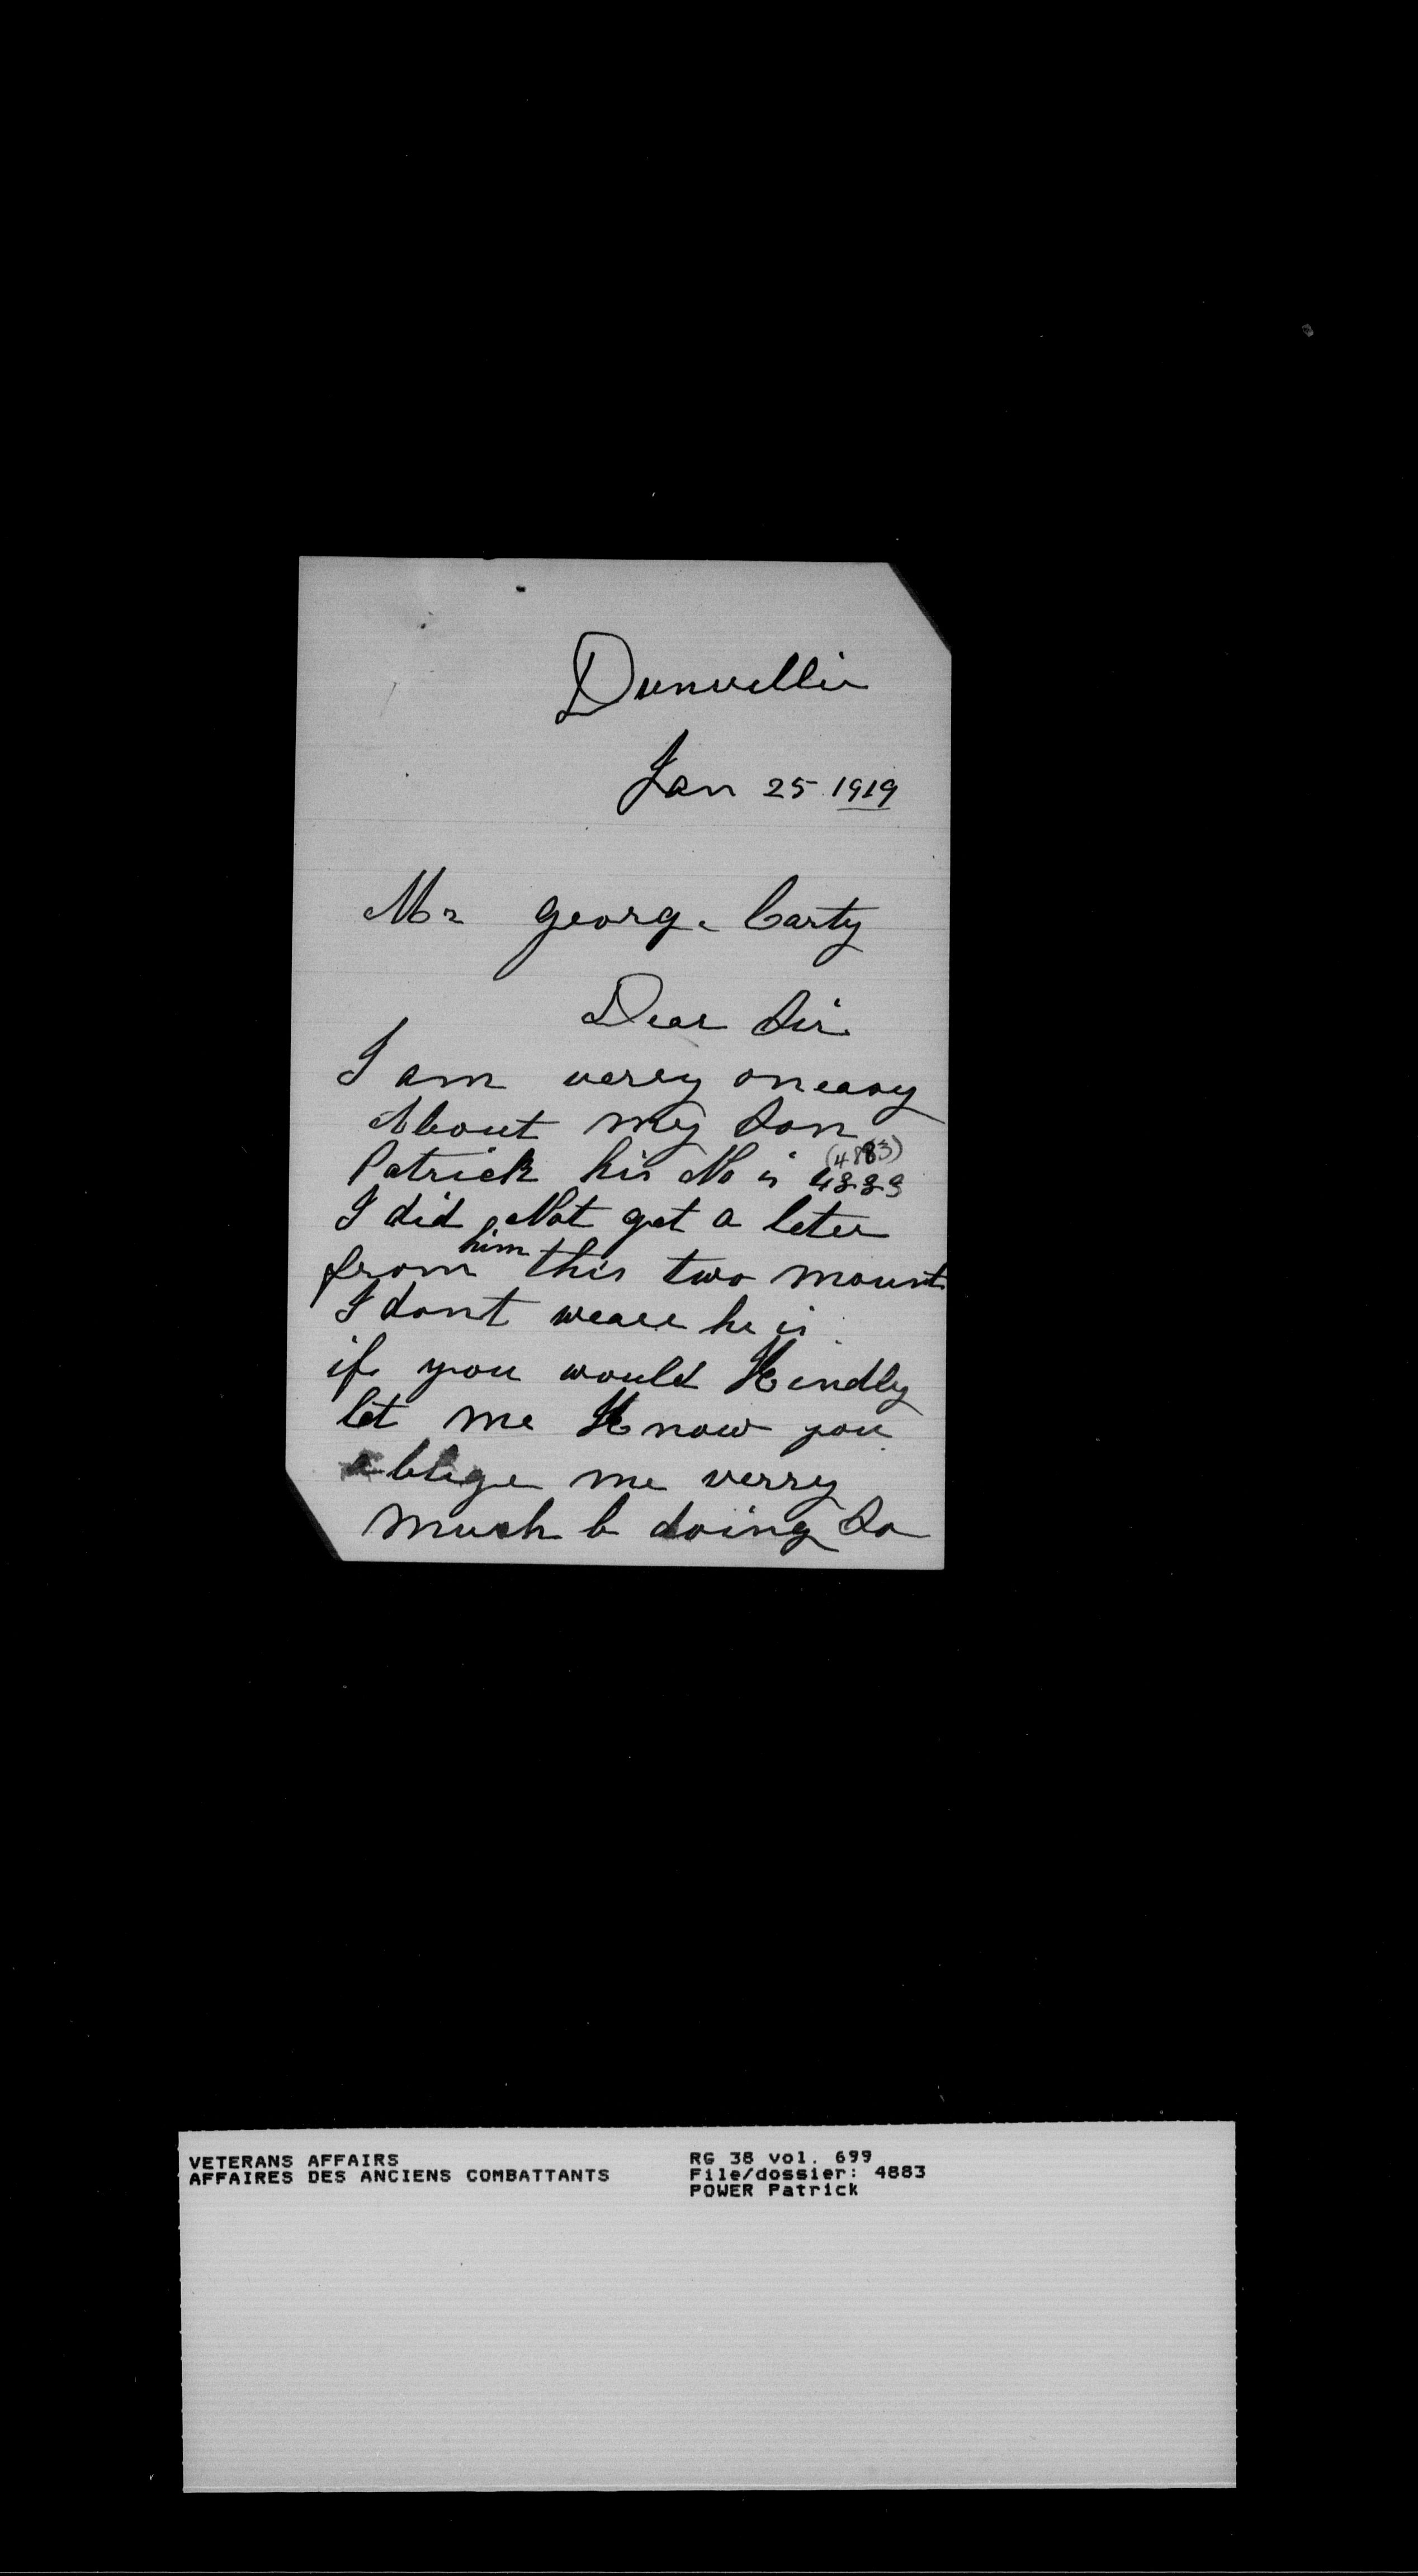 Dunvillie
Jan 25 1919
Mr george Carty
Dear Sir
I am verry oneasy
About my Son
(4883)
Patrick his No is 4333
I did Not get a leter
from him this two mount
I dont weare he is
if you would Kindly
let me Know you
oblige me verry
much b doing So
VETERANS AFFAIRS
AFFAIRES DES ANCIENS COMBATTANTS
RG 38 vol. 699
File/dossier: 4883
POWER Patrick